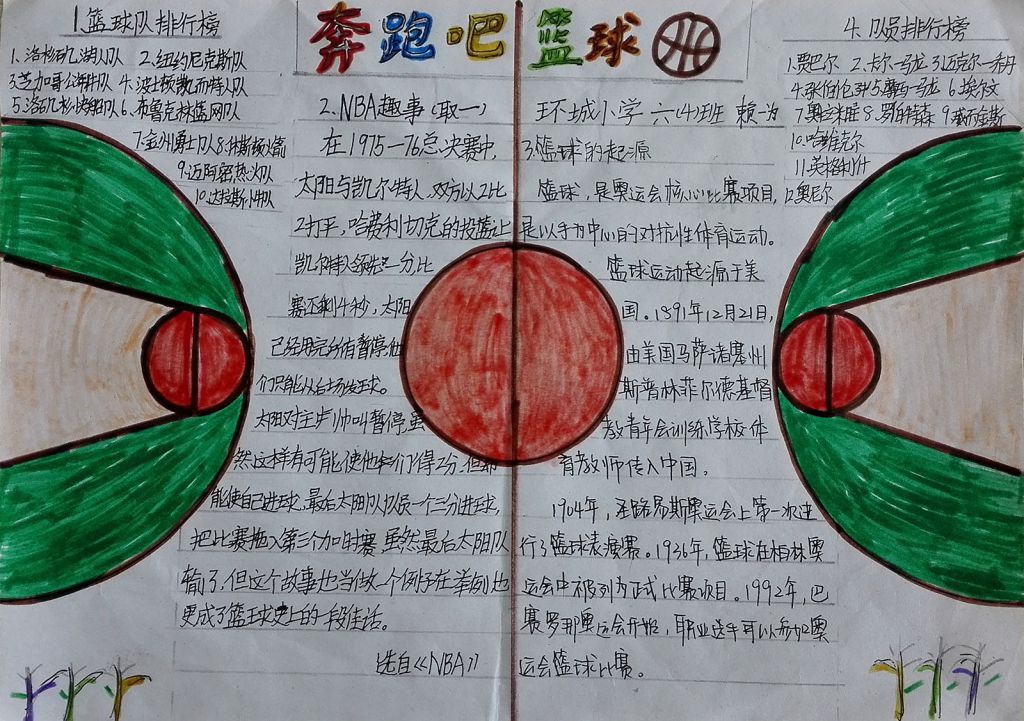 奔跑吧篮球
1.篮球队排行榜
1.洛杉矶湖人队 2.纽约尼克斯队
3.芝加哥公牛队 4.波士顿凯而特人队
5.洛矶杉快船队 6.布鲁克林篮网队
7.金州勇士队 8.休斯顿火箭
9.迈阿密热火队
10.达拉斯小牛队
2.NBA趣事(取一)
在1975—76总决赛中,
太阳与凯尔特人,双方以2比
2打平,哈费利切克的投篮让
凯尔特人领先一分,比
赛还剩4秒,太阳
已经用完所有暂停,他
们只能从后场发球。
太阳对主步帅叫暂停,虽
然这样有可能使他
们得2分,但却
能使自己进球,最后太阳队队员一个三分进球,
把比赛拖入第三个加时赛.虽然最后太阳队
输了,但这个故事也当做一个例子在举例也
更成了篮球史上的一段佳话。
选自《NBA》
环城小学 六(4)班 赖一为
3.篮球的起源
篮球,是奥运会核心比赛项目,
是以手为中心的对抗性体育运动。
篮球运动起源于美
国。1891年12月21日,
由美国马萨诸塞州
斯普林菲尔德基督
教青年会训练学校体
育教师传入中国。
1904年,圣路易斯奥运会上第一次进
行了篮球表演赛。1936年,篮球在柏林奥
运会中被列为正式比赛项目。1992年,巴
赛罗那奥运会开始,职业选手可以参加奥
运会篮球比赛。
4.队员排行榜
1.贾巴尔 2.卡尔—马龙 3.迈克尔—乔丹
4.张伯伦 5.赛马—马龙 6.埃尔文
7.奥拉朱旺 8.罗伯特森
10.哈维克尔
11.英格利什
12.奥尼尔